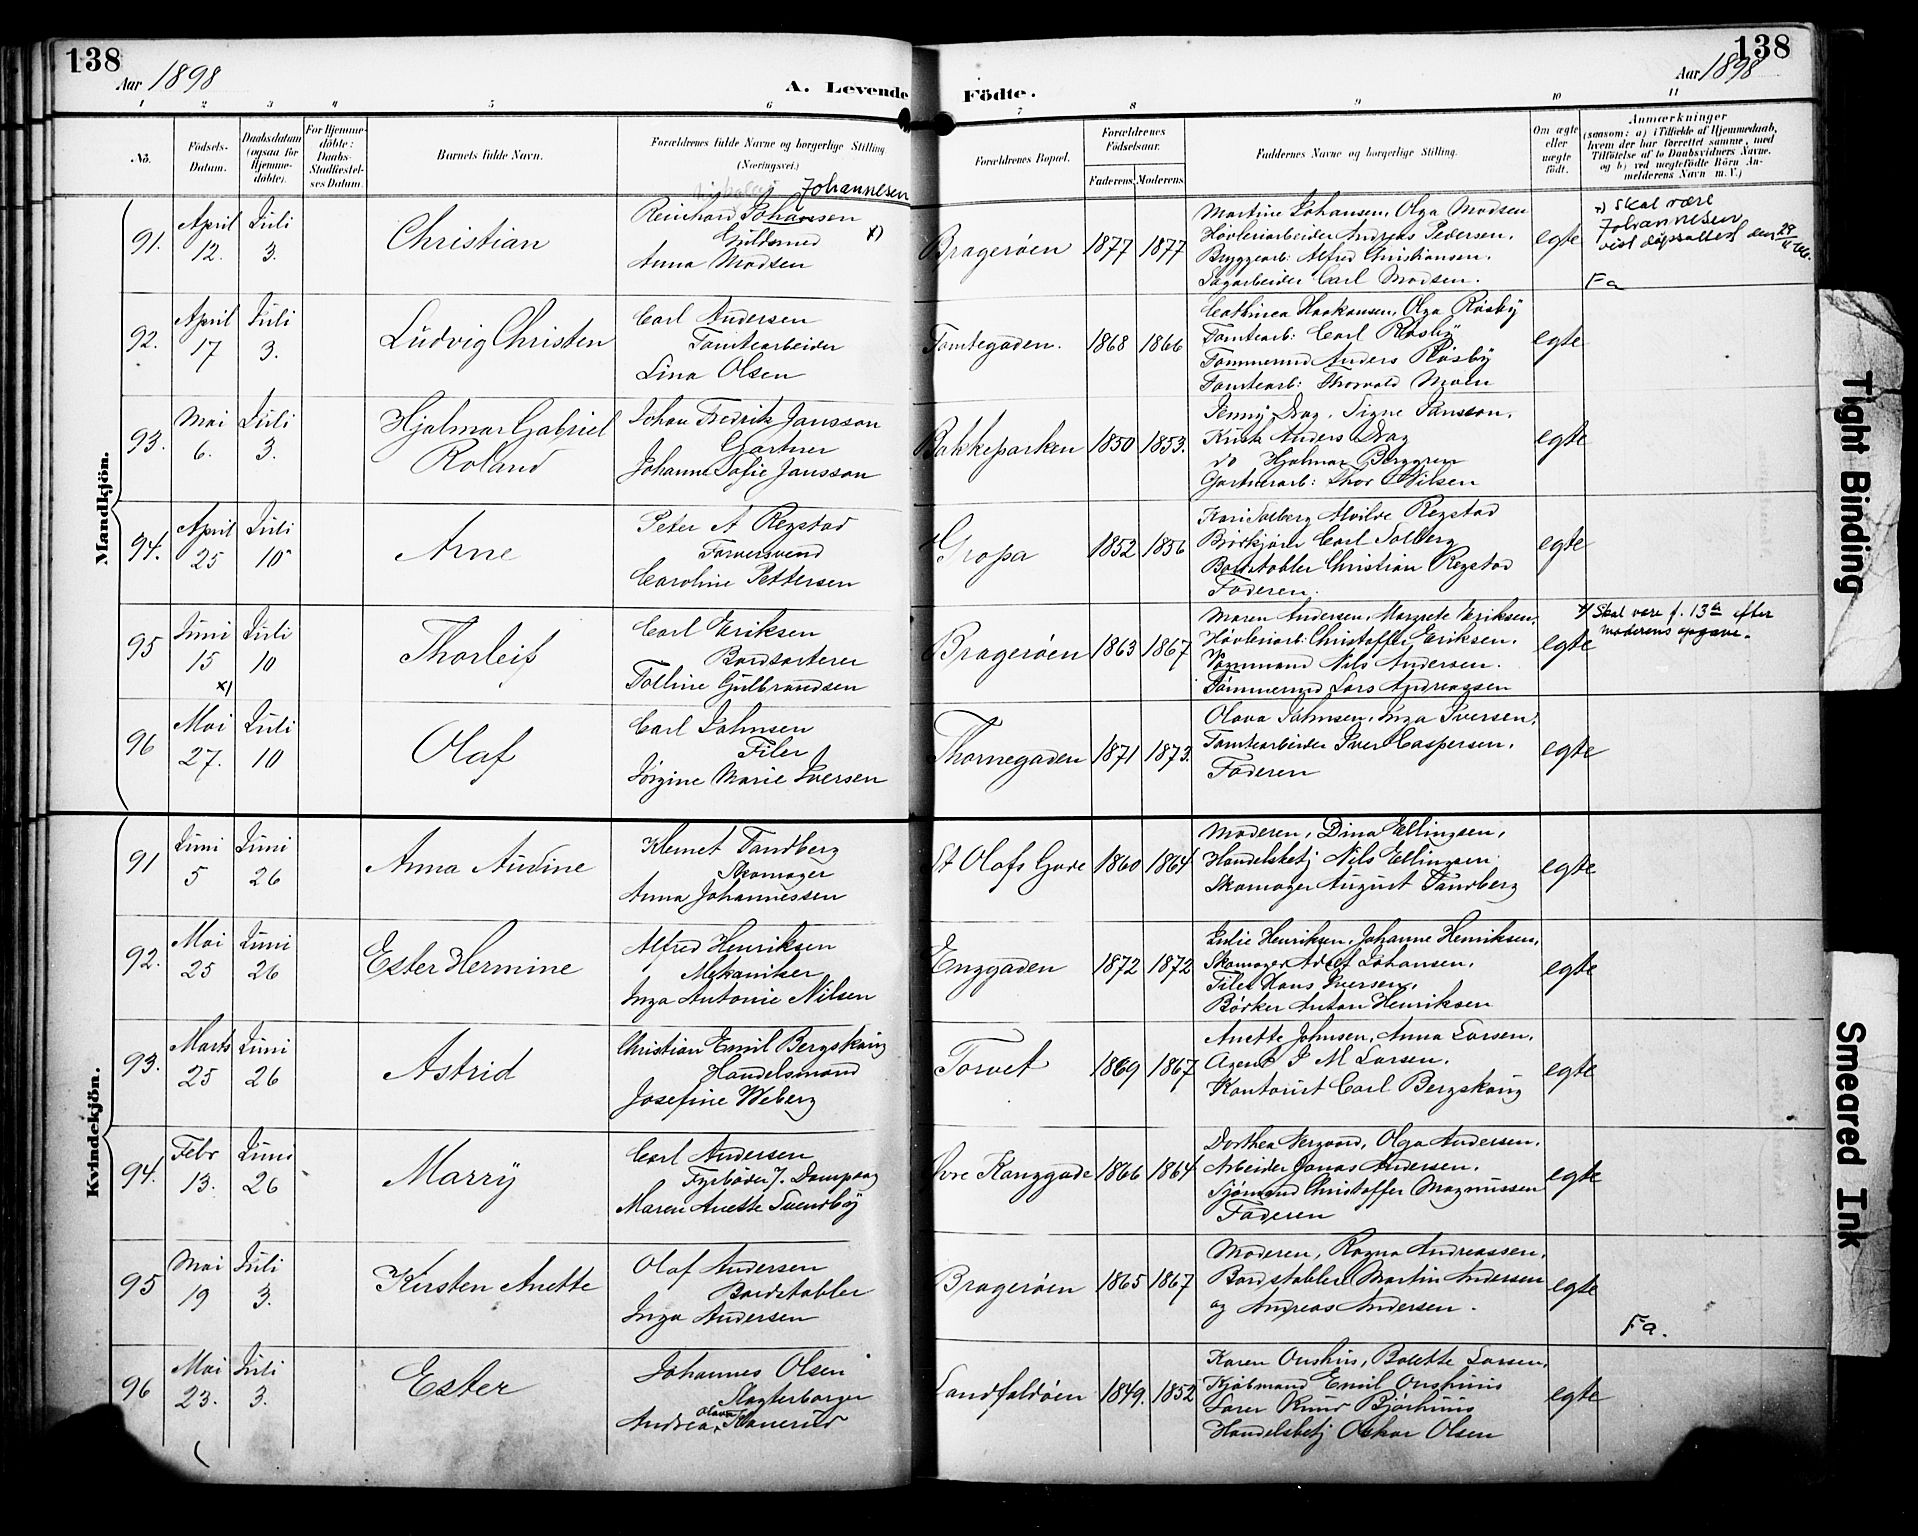 138
Aar 1898
A. Levende
Födte.
Aar 1898
138
1 2 3 4 5 6 7 8 9 10 11
No.
Födsels-
Datum.
Daabsdatum
(ogsaa for
Hjemme-
døbte).
For Hjemme-
døbte:
Daabs-
Stadfæstel-
ses Datum.
Barnets fulde Navn.
Forældrenes fulde Navne og borgerlige Stilling
(Næringsvei.)
Forældrenes Bopæl.
Forældrenes
Födselsaar.
Faderens. Moderens.
Faddernes Navne og borgerlige Stilling.
Om ægte
eller
uægte
født.
Anmærkninger
(saasom: a) i Tilfælde af Hjemmedaab,
hvem der har forrettet samme, med
Tilföielse af to Daabsvidners Navne,
og b) ved uegtefödte Börn An-
melderens Navn m. V.)
Mandkjön.
91. April 12. Juli 3. Christian
Johannesen
Reinhard Johansen x)
Guldsmed
Anna Madsen
Bragerøen 1877 1877
Martine Johansen, Olga Madsen
Høvleriarbeider Andreas Pedersen.
Bryggearb. Alfred Christiansen.
Sagarbeider Carl Madsen.
egte
x) skal være
Johannesen,
vist dåpsattest den
Fa
92. April 17 Juli 3. Ludvig Christen
Carl Andersen
Tomtearbeider
Lina Olsen
Tomtegaden. 1868 1866
Cathinca Haakansen, Olga Røsby
Tomtearb: Carl Røsby
Tømmermd Anders Røsby
Tomtearb: Thorvald Moen
egte
93. Mai 6. Juli 3. Hjalmar Gabriel
Roland
Johan Fredrik Jansson
Gartner
Johanne Sofie Jansson
Bakkeparken 1850 1853.
Jenny Drag, Signe Jansson.
Kusk Anders Drag
do Hjalmar Berggren
Gartnerarb: Thor Nilsen
egte
94. April 25 Juli 10 Arne
Peter A Regstad
Farversvend
Caroline Pettersen
Gropa 1852 1856
Kari Solberg Alvilde Regstad
Carl Solberg
Bordstabler Christian Regstad
Faderen.
egte
95 Juni 15 x) Juli 10 Thorleif
Carl Eriksen
Bordsorterer
Tolline Gulbrandsen
Bragerøen 1863 1867
Maren Andersen, Margrete Eriksen,
Høvleriarb: Christoffer Eriksen.
Nils Andersen.
Tømmermd Lars Andreassen
egte
x) Skal være f. 13de efter
moderens opgave.
96 Mai 27. Juli 10 Olaf
Carl Johnsen
Filer
Jørgine Marie Iversen
Thornegaden 1871 1873.
Olava Johnsen, Inga Iversen,
Tomtearbeider Iver Caspersen.
Faderen
egte
Kvindekjön.
91 Juni 5 Juni 26 Anna Audine
Klemet Tandberg
Skomager
Anna Johannessen
St Olafs Gade 1860 1864
Moderen, Dina Ellingsen,
Handelsbetj Nils Ellingsen
Skomager August Tandberg
egte
92. Mai 25 Juni 26 Ester Hermine
Alfred Henriksen
Mekaniker
Inga Antonie Nilsen
Enggaden 1872 1872
Julie Henriksen, Johanne Henriksen,
Skomager Adolf Johansen,
Filer Hans Iversen,
Bødker Anton Henriksen
egte
93. Marts 25 Juni 26 Astrid
Christian Emil Bergskaug
Handelsmand
Josefine Weberg
Torvet 1869 1867
Anette Johnsen, Anna Larsen,
Agent I M Larsen.
Kontorist Carl Bergskaug
egte
94. Febr 13. Juni 26 Marry
Carl Andersen
Fyrbøder
Maren Anette Svendby
Øvre Langgade 1866 1864
Dorthea Nergaard, Olga Andersen.
Arbeider Jonas Andersen.
Sjømand Christoffer Magnussen
Faderen
egte
95 Mai 19 Juli 3. Kirsten Anette
Olaf Andersen
Bordstabler
Inga Andersen
Bragerøen 1865 1867
Moderen, Ragna Andreassen.
Bordstabler Martin Andersen
og Andreas Andersen.
egte
Fa.
96 Mai 23. Juli 3. Ester
Johannes Olsen
Slagterborger
Andrea Olava Hanerud
Landfaldøen 1849. 1852
Karen Onshuus, Bolette Larsen,
Kjøbmand Emil Onshuus
Lærer Knud Bjørhuus
Handelsbetj Oskar Olsen
egte
Tight Binding
Smeared Ink